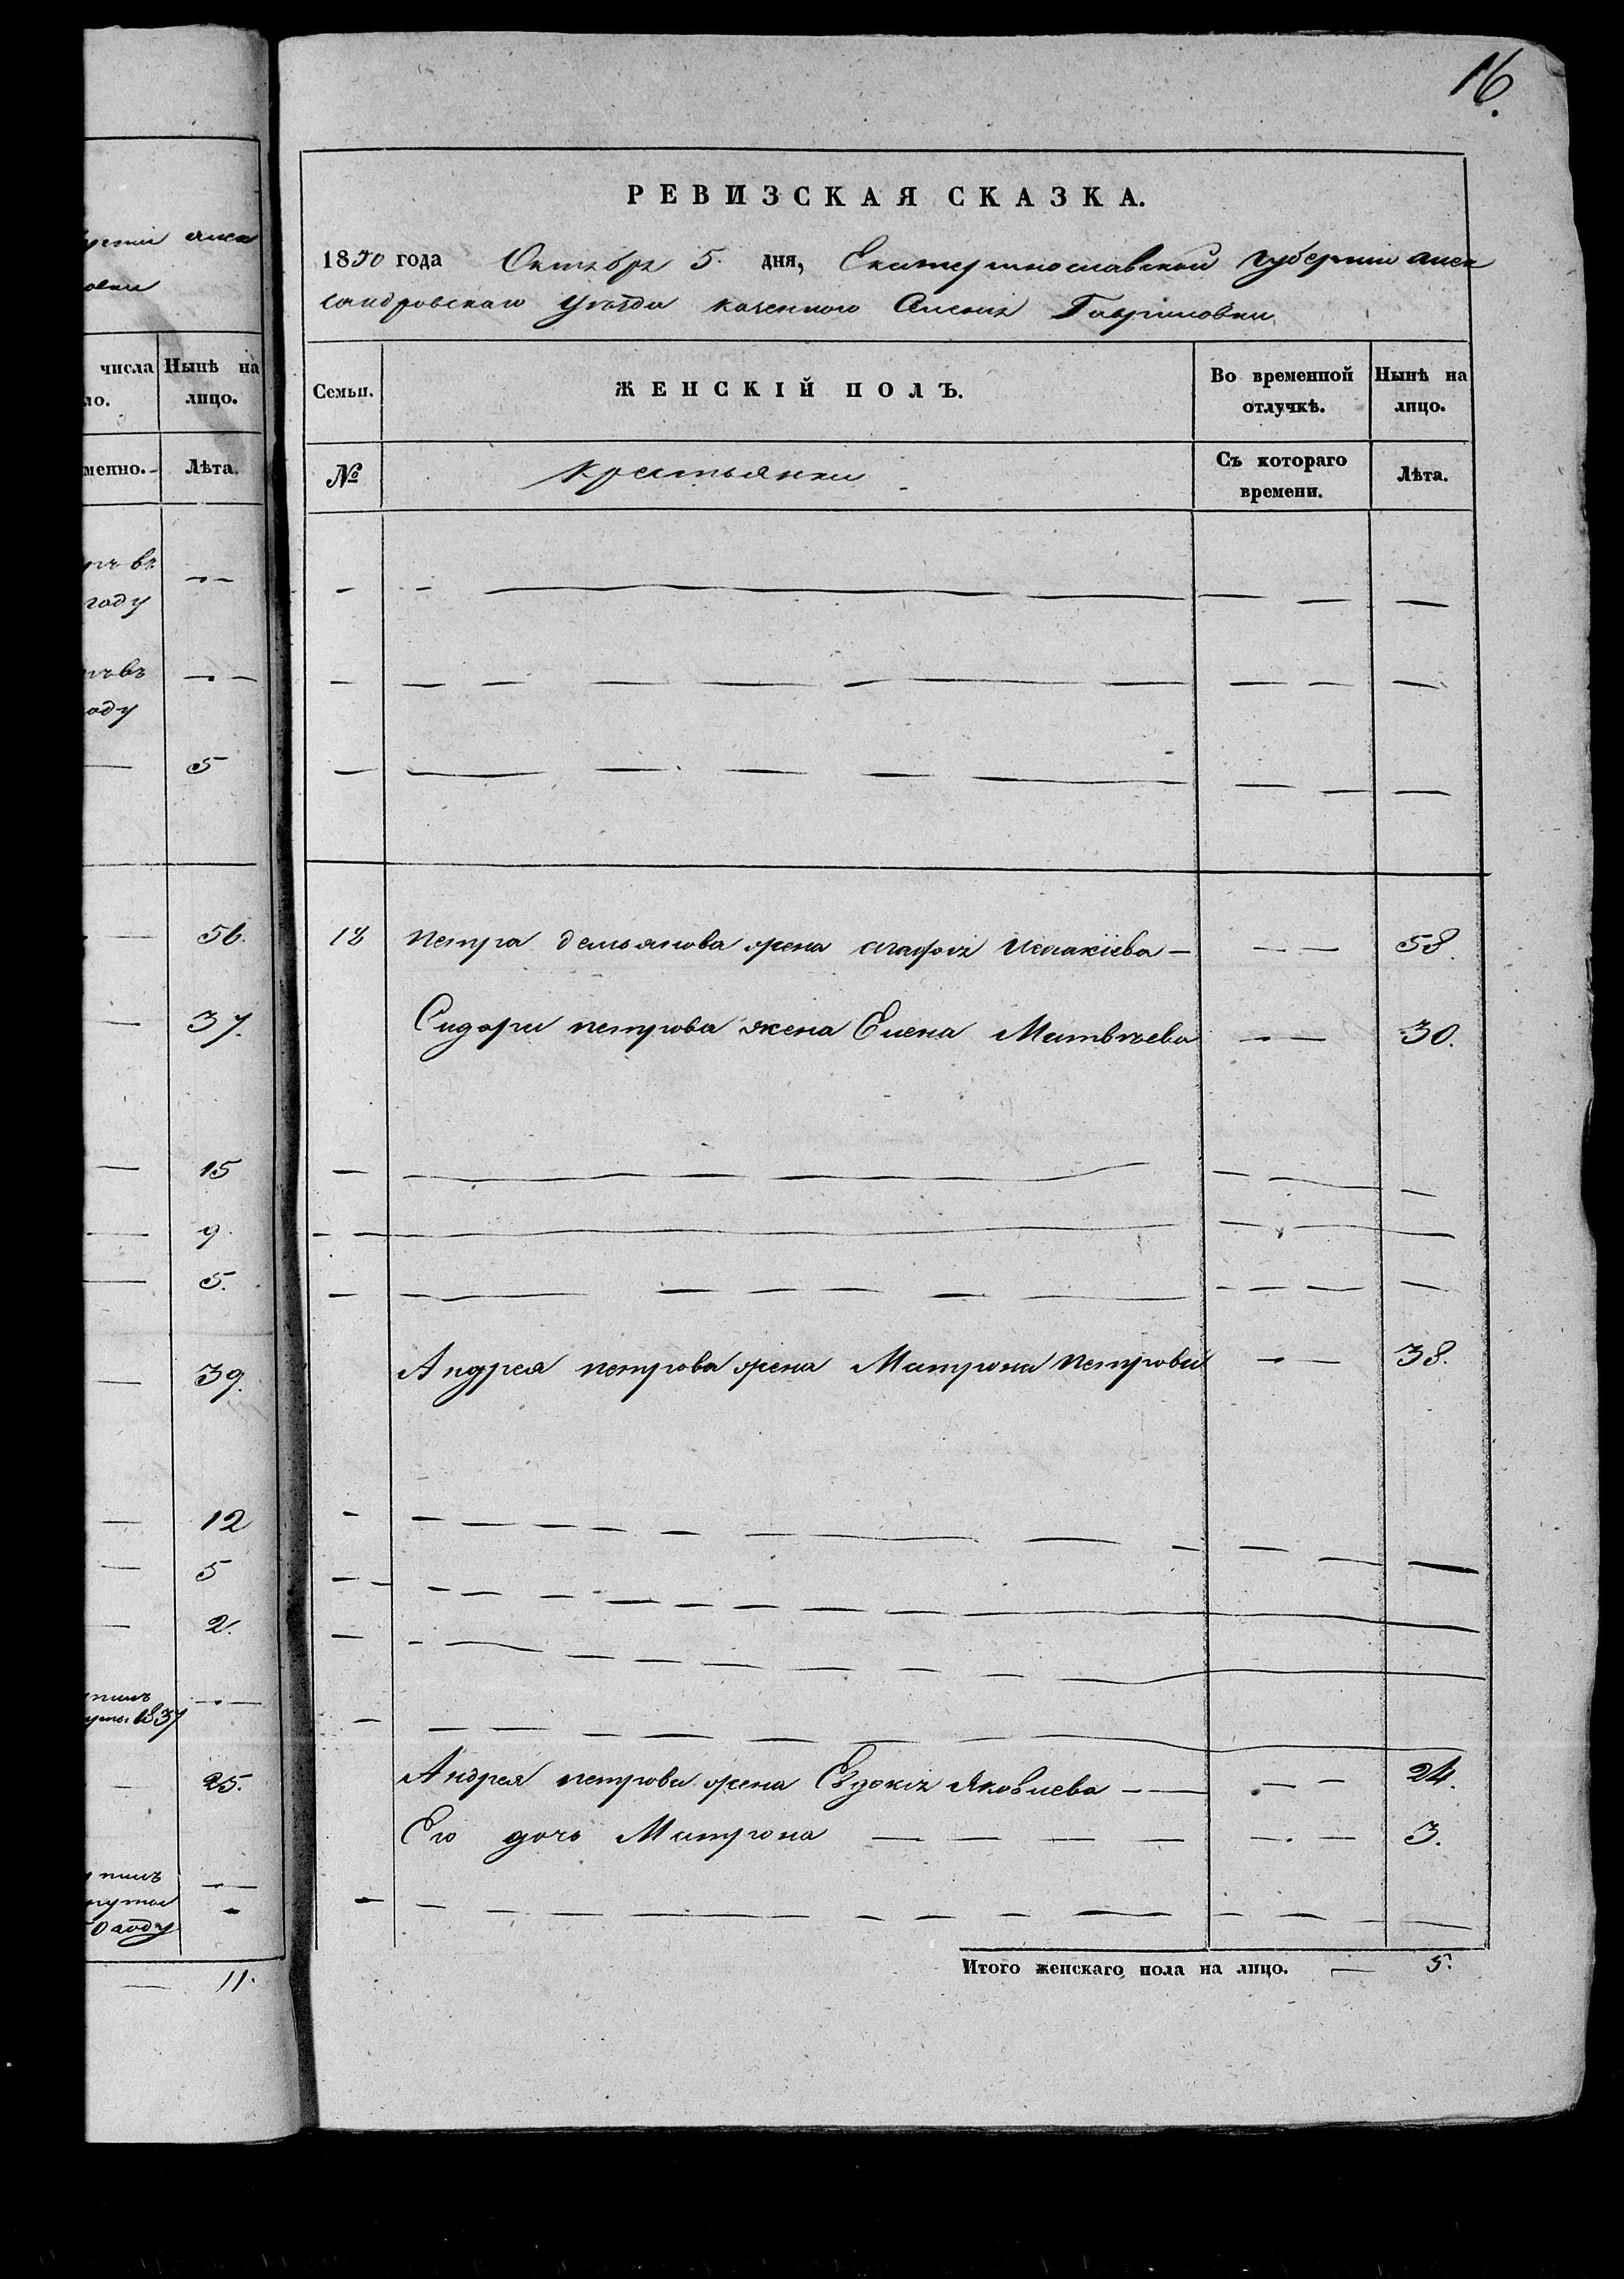 16.
РЕВИЗСКАЯ СКАЗКА.
1850 года Октября 5. дня, Екатеринославской губернии алек
сандровскаго уѣзда казенного Селенія Гавриловки
Семьи.
ЖЕНСКІЙ ПОЛЪ.
Во временной отлучкѣ.
Нынѣ на лицо.
№
Крестьянки
Съ котораго времени.
Лѣта.
18 петра демьянова жена агафія Исаакіева — — — 58.
Сидора петрова жена Елена Матвѣева — — 30.
Андрея петрова жена Матрона петрова — — 38.
Андрея петрова жена Евдокія Яковлева — — — — 24.
Его дочь Матрона — — — — — — 3.
Итого женскаго пола на лицо. — 5.
числа
ло.
Нынѣ на
лицо.
менно.
Лѣта.
году
5
56.
37.
15
9.
5.
39.
12
5
2.
1837
25.
году
11.